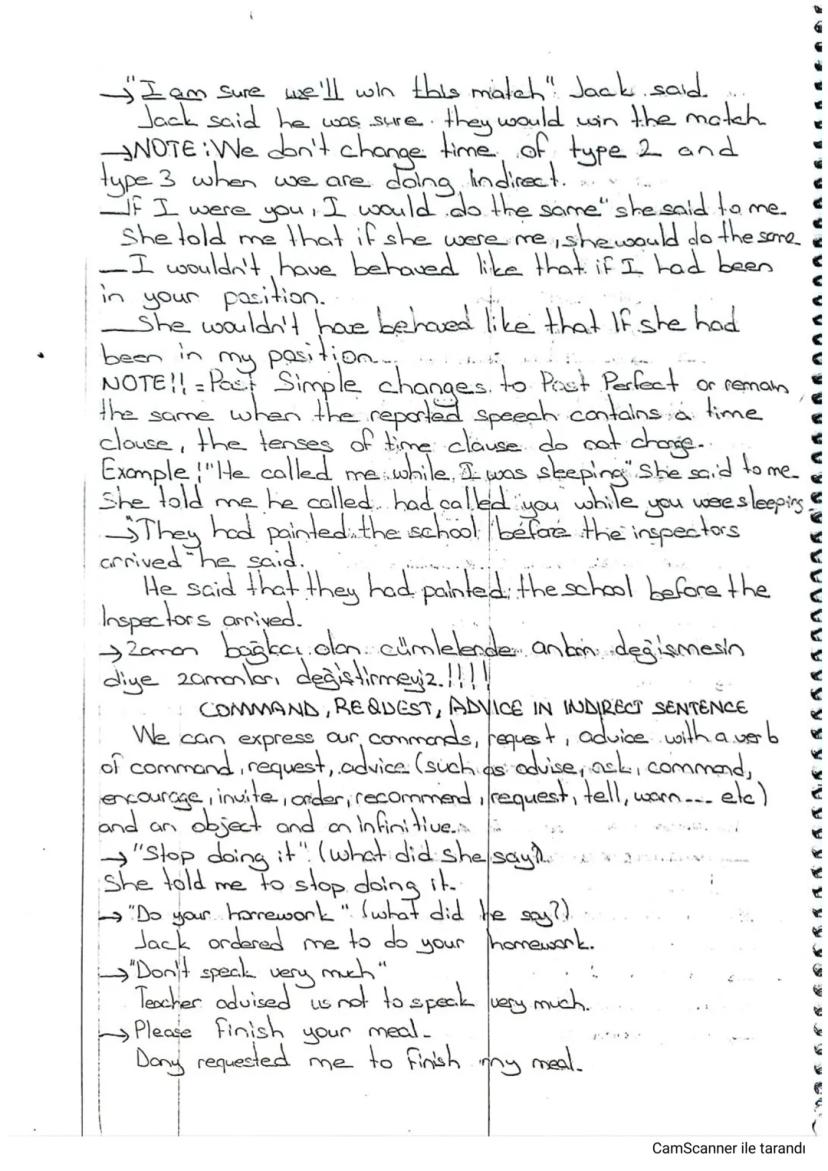 →"I am sure we'll win this match". Jack said.
Jack said he was sure they would win the match
→NOTE: We don't change time of type 2 and
type 3 when we are doing indirect.
—If I were you, I would do the same" she said to me.
She told me that if she were me, she would do the same
—I wouldn't have behaved like that if I had been
in your position.
—She wouldn't have behaved like that If she had
been in my position.
NOTE!! = Past Simple changes to Past Perfect or remain
the same when the reported speech contains a time
clause, the tenses of time clause do not change.
Example: "He called me while I was sleeping" She said to me.
She told me he called had called you while you were sleeping
→"They had painted the school before the inspectors
arrived" he said.
He said that they had painted the school before the
Inspectors arrived.
→zaman bağlacı olan cümlelende anlam değişmesin
diye zamanları değiştirmeyiz.!!!!
COMMAND, REQUEST, ADVICE IN INDIRECT SENTENCE
We can express our commands, request, advice with a verb
of command, request, advice (such as advise, ask, command,
encourage, invite, order, recommend, request, tell, warn... etc)
and an object and an infinitive.
→"Stop doing it". (what did she say?)
She told me to stop doing it.
→"Do your homework" (what did he say?)
Jack ordered me to do your homework.
→"Don't speak very much"
Teacher advised us not to speak very much.
→Please finish your meal.
Dany requested me to finish my meal.
CamScanner ile tarandı